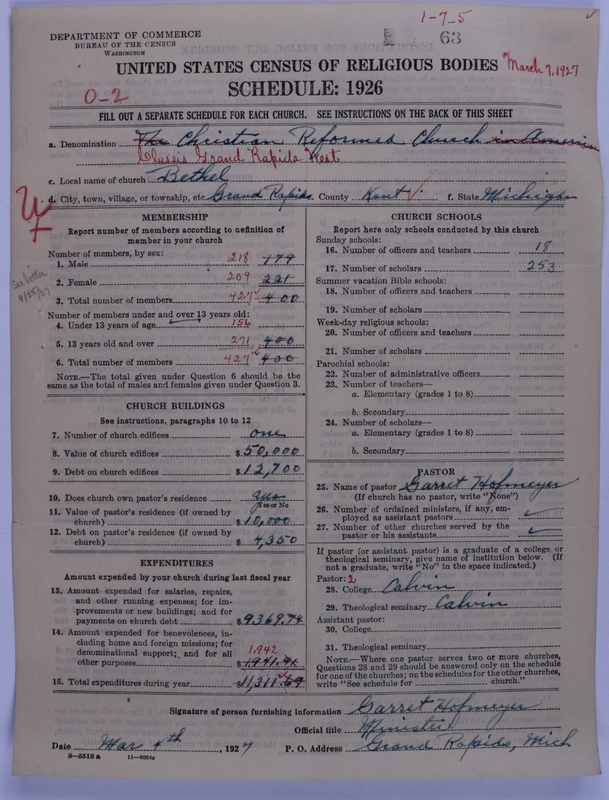 1-7-5
63
DEPARTMENT OF COMMERCE
BUREAU OF THE CENSUS
WASHINGTON
UNITED STATES CENSUS OF RELIGIOUS BODIES
March 7, 1927
SCHEDULE: 1926
0-2
FILL OUT A SEPARATE SCHEDULE FOR EACH CHURCH. SEE INSTRUCTIONS ON THE BACK OF THIS SHEET
a. Denomination The Christian Reformed Church in America
Classis Grand Rapids West
c. Local name of church Bethel
d. City, town, village, or township, etc. Grand Rapids County Kent f. State Michigan
MEMBERSHIP
Report number of members according to definition of
member in your church
Number of members, by sex:
1. Male 218 179
2. Female 209 221
3. Total number of members 427 400
See letter
4/25/27
Number of members under and over 13 years old:
4. Under 13 years of age 156
5. 13 years old and over 271 400
6. Total number of members 427 400
NOTE.—The total given under Question 6 should be the
same as the total of males and females given under Question 3.
CHURCH BUILDINGS
See instructions, paragraphs 10 to 12
7. Number of church edifices one
8. Value of church edifices $50,000
9. Debt on church edifices $12,700
10. Does church own pastor's residence yes
Yes or No
11. Value of pastor's residence (if owned by
church) $10,000
12. Debt on pastor's residence (if owned by
church) $ 4,350
EXPENDITURES
Amount expended by your church during last fiscal year
13. Amount expended for salaries, repairs,
and other running expenses; for im-
provements or new buildings; and for
payments on church debt $9369.74
14. Amount expended for benevolences, in-
cluding home and foreign missions; for
denominational support; and for all
other purposes 1,942 $1,941.94
15. Total expenditures during year $11,311.69
CHURCH SCHOOLS
Report here only schools conducted by this church
Sunday schools:
16. Number of officers and teachers 18
17. Number of scholars 253
Summer vacation Bible schools:
18. Number of officers and teachers
19. Number of scholars
Week-day religious schools:
20. Number of officers and teachers
21. Number of scholars
Parochial schools:
22. Number of administrative officers
23. Number of teachers—
a. Elementary (grades 1 to 8)
b. Secondary
24. Number of scholars—
a. Elementary (grades 1 to 8)
b. Secondary
PASTOR
25. Name of pastor Garret Hofmeyer
(If church has no pastor, write "None")
26. Number of ordained ministers, if any, em-
ployed as assistant pastors
27. Number of other churches served by the
pastor or his assistants
If pastor (or assistant pastor) is a graduate of a college or
theological seminary, give name of institution below. (If
not a graduate, write "No" in the space indicated.)
Pastor: 2
28. College Calvin
29. Theological seminary Calvin
Assistant pastor:
30. College
31. Theological seminary
NOTE.—Where one pastor serves two or more churches,
Questions 28 and 29 should be answered only on the schedule
for one of the churches; on the schedules for the other churches,
write "See schedule for church."
Signature of person furnishing information Garret Hofmeyer
Official title Minister
Date Mar 4th, 1927 P. O. Address Grand Rapids, Mich
8—5518 a 11—9054a